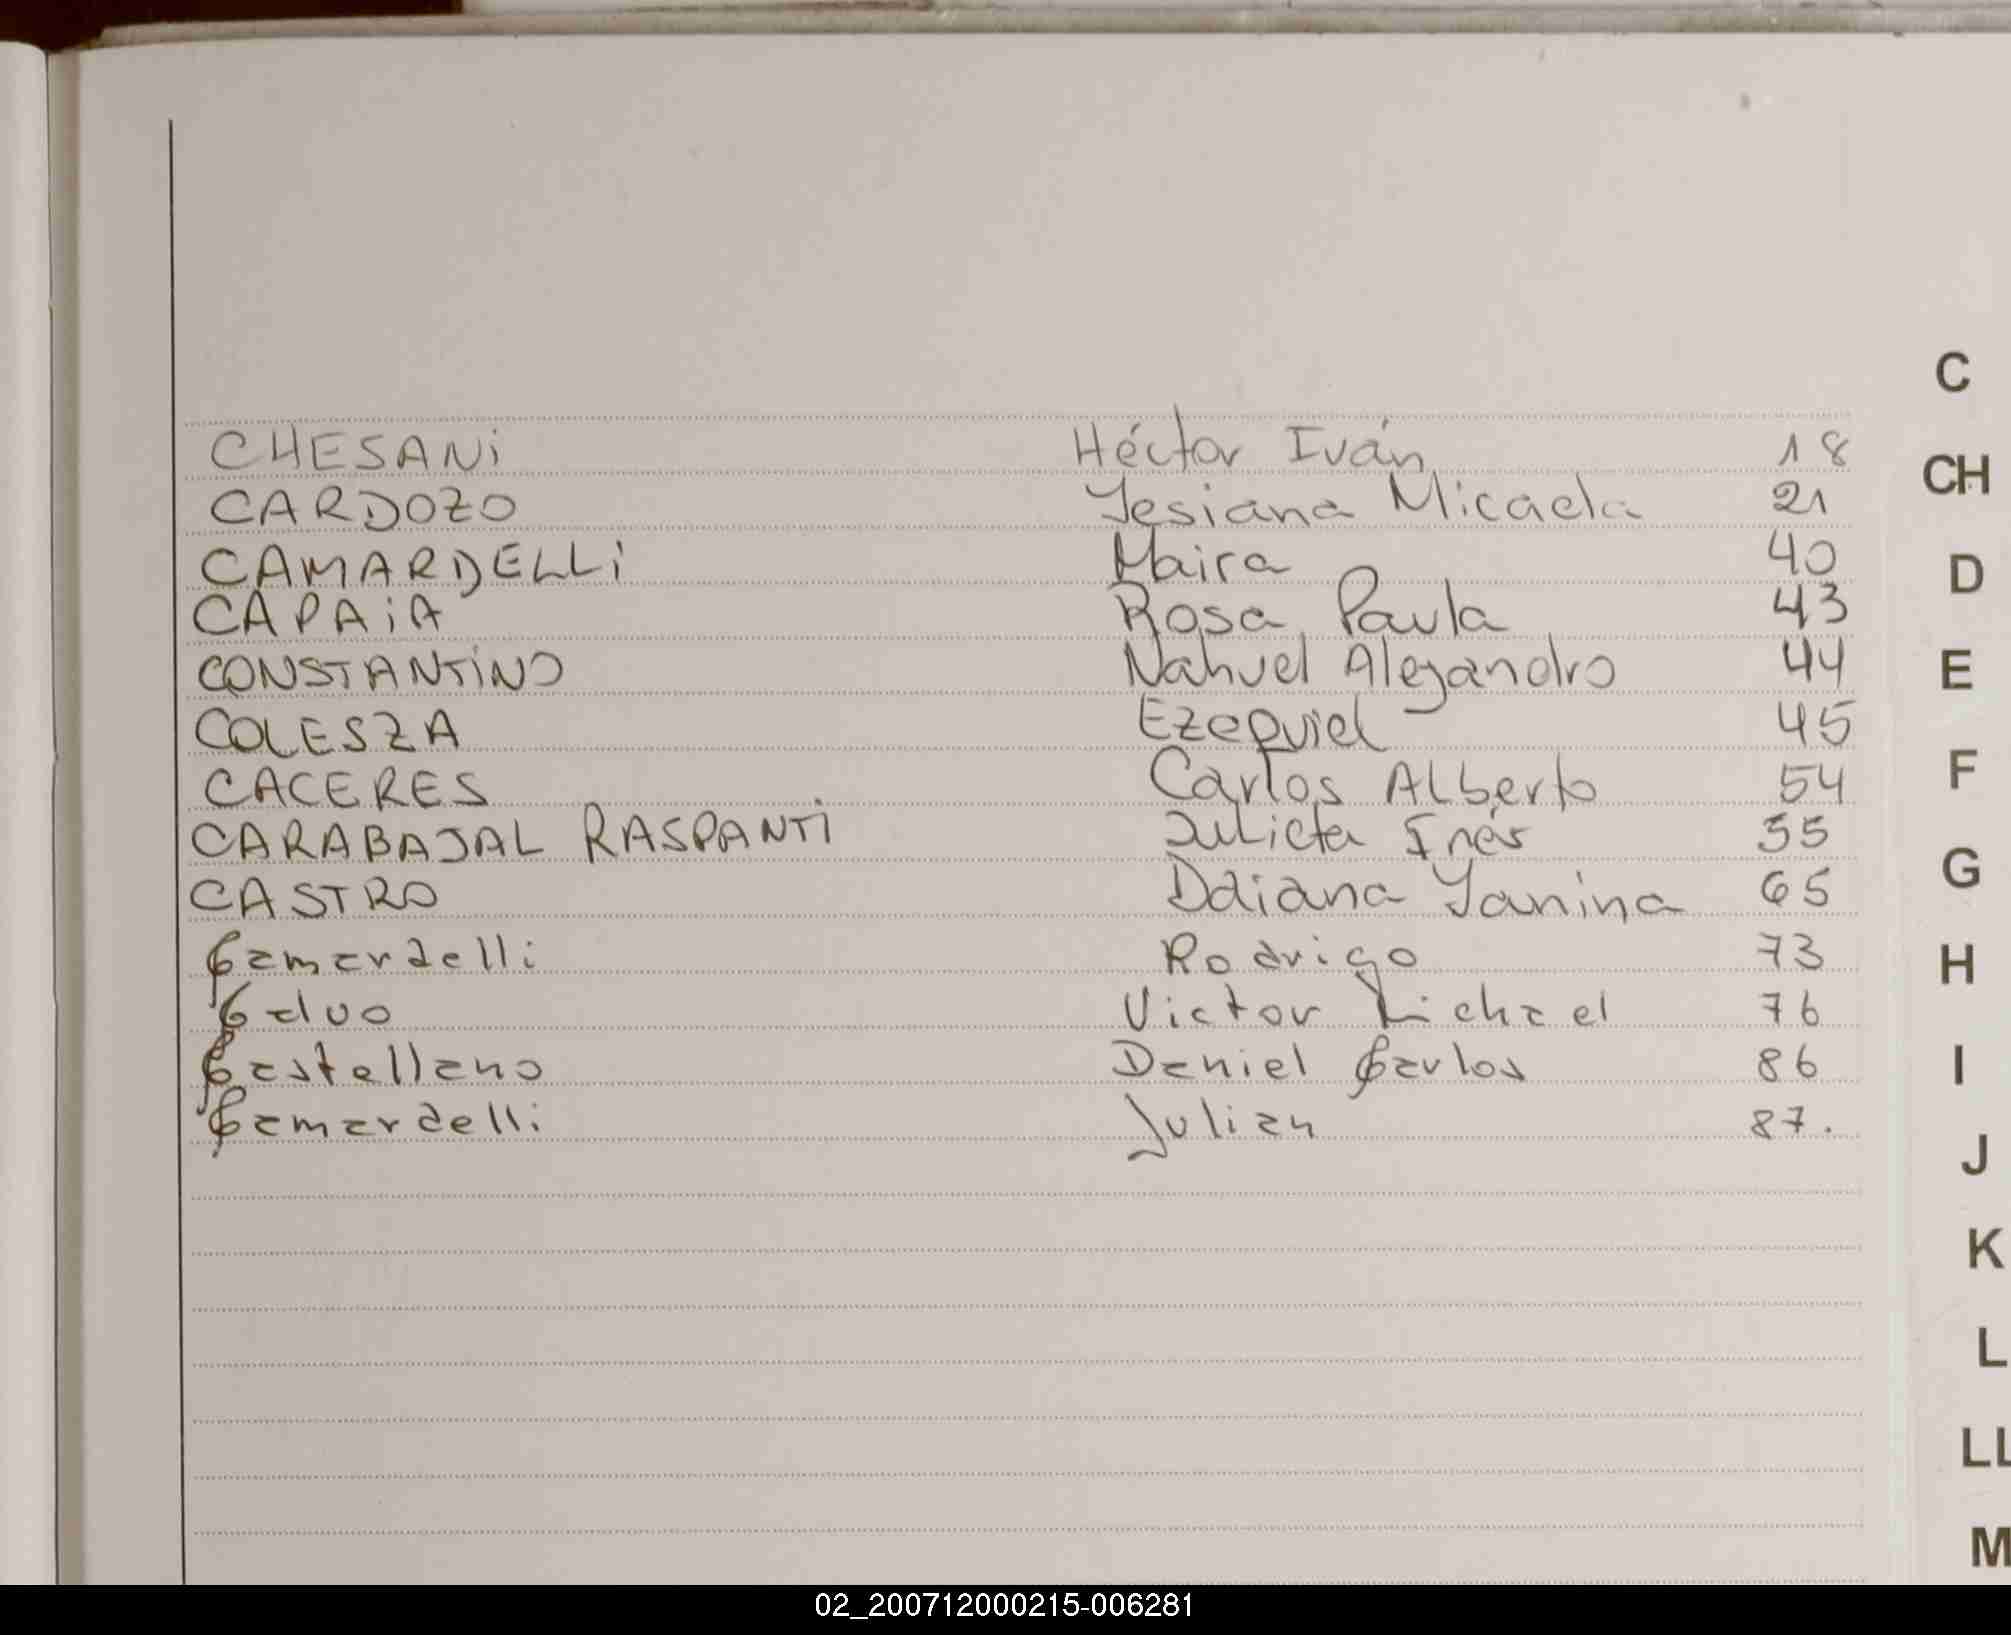 CHESANi Héctor Iván 18
CARDOZO Yesiana Micaela 21
CAMARDELLi Maira 40
CAPAiA Rosa Paula 43
CONSTANTiNO Nahuel Alejandro 44
COLESZA Ezequiel 45
CACERES Carlos Alberto 54
CARABAJAL RASPANTi Julieta Inés 55
CASTRO Daiana Yanina 65
Camardelli Rodrigo 73
Calvo Victor Michael 76
Castellano Daniel Carlos 86
Camardelli Julian 87.
C
CH
D
E
F
G
H
I
J
K
L
LL
M
02_200712000215-006281